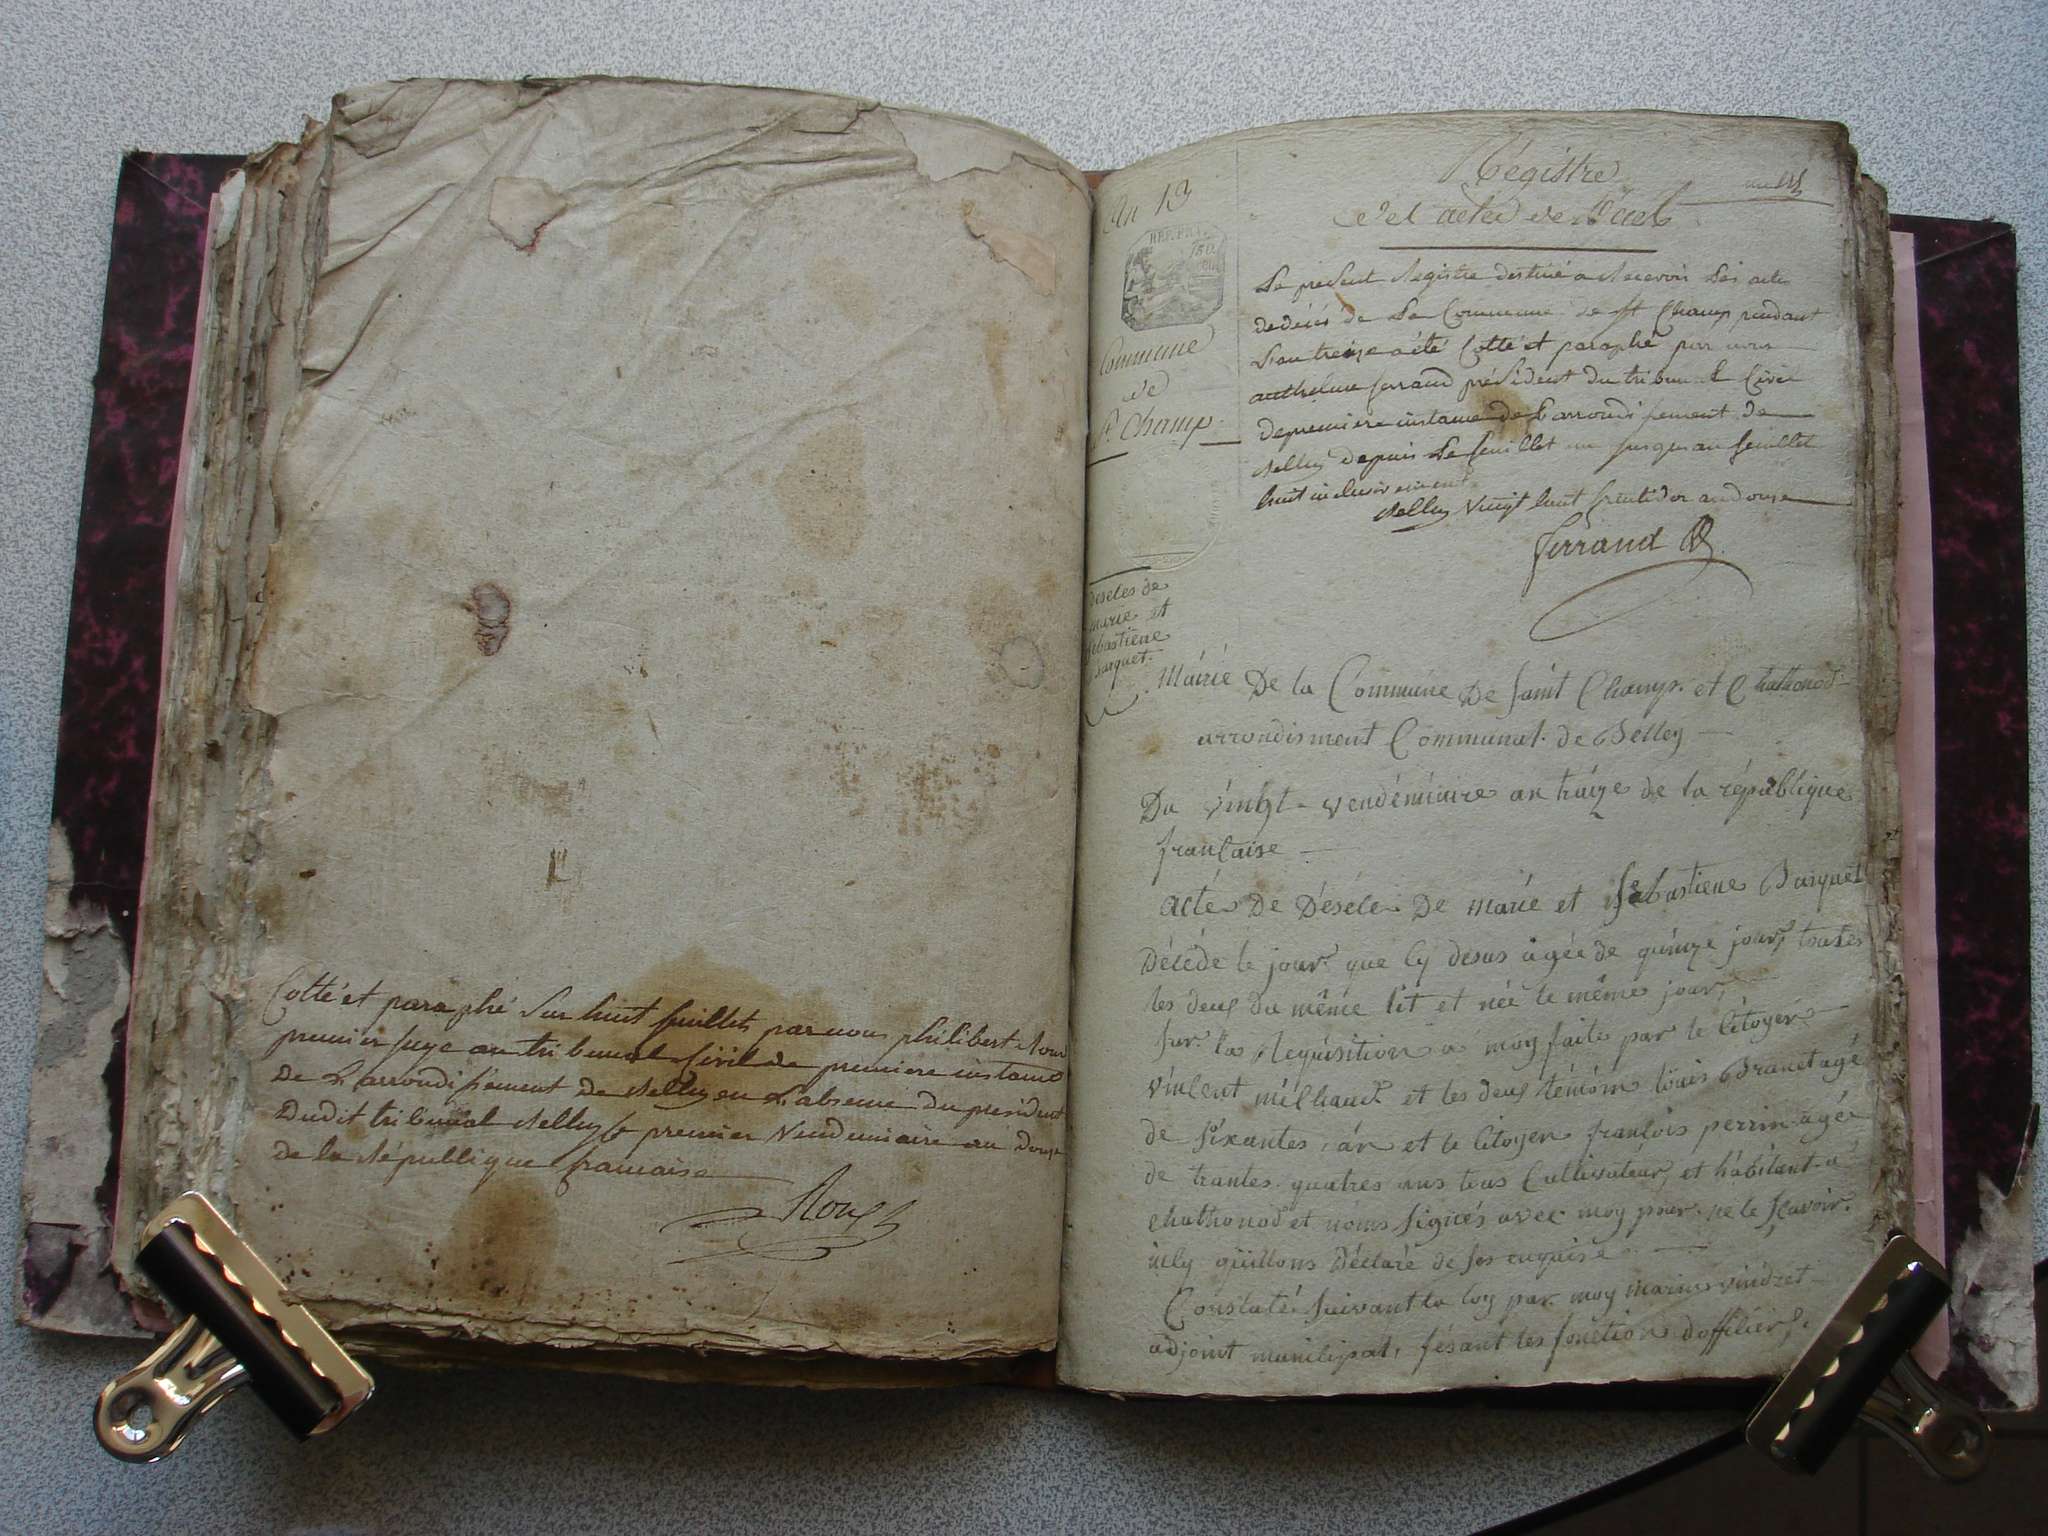 Cotté et paraphé Sur huit feuillets par nous philibert Roux
premier juge au tribunal Civil de premiere instance
De L'arrondissement De Belley en L'absence du president
Dudit tribunal Belley le premier Vendemiaire an Douze
de la République francaise
Roux
An 13
REP. FRA.
Commune
de
St. Champ
Déseles de
marie et
sébastiene
Régistre
Des actes de Décès
Le présent Registre destiné a Recevoir Les actes
de décès de La Commune de St Champ pendant
L'an treize a été Cotté et paraphé par nous
anthelme ferrand président du tribunal Civil
de premiere instance de L'arrondissement de
Belley depuis Le feuillet un jusques au feuillet
huit inclusivement
Belley Vingt huit fructidor an douze
Ferrand
Máirié De la Commune De saint Champ. et Chathonod
arrondisment Communal. de Belley
Du vingt vendémiaire an tráize de la république
française
acté De Désele De marie et sébastiene
Décéde le jour que cy desus agée de quinze jours toutes
les deus du même lit et née le même jour,
sur la Requisition a moy faite par le Citoyen
vincent milhaud et les deus témoins louis Branet agé
de sixantes an et le Citoyen françois perrin agé
de trantes quatres ans tous Cultivateur, et hábitant a
chathonod et noms signés avec moy pour ne le sçavoir.
Déclaré de ses enquise
Constaté Suivant la loy par moy marins vindret
adjoint municipal, fésant les fonction d'officier